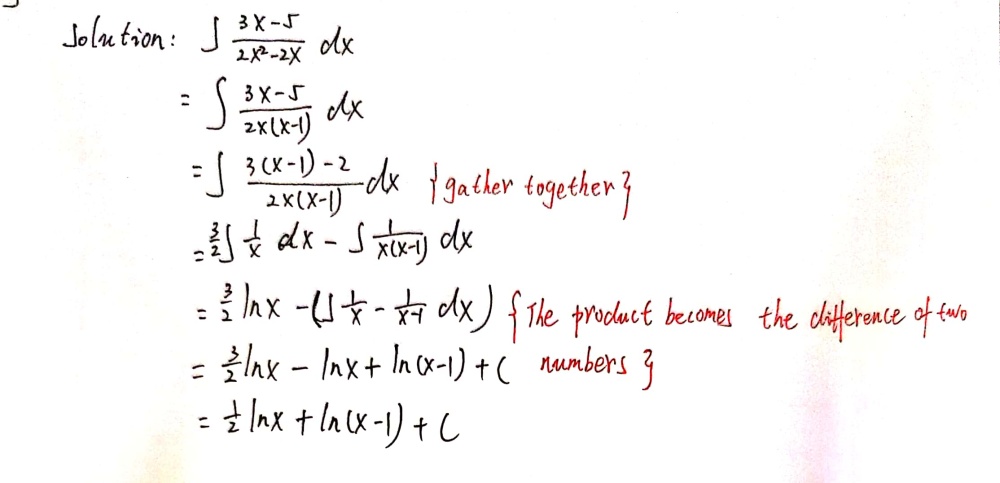 Solution: ∫ (3x-5)/(2x²-2x) dx
= ∫ (3x-5)/(2x(x-1)) dx
= ∫ (3(x-1)-2)/(2x(x-1)) dx {gather together}
= 3/2 ∫ 1/x dx - ∫ 1/(x(x-1)) dx
= 3/2 lnx - (∫ 1/x - 1/(x-1) dx) {The product becomes the difference of two
= 3/2 lnx - lnx + ln(x-1) + C numbers}
= 1/2 lnx + ln(x-1) + C